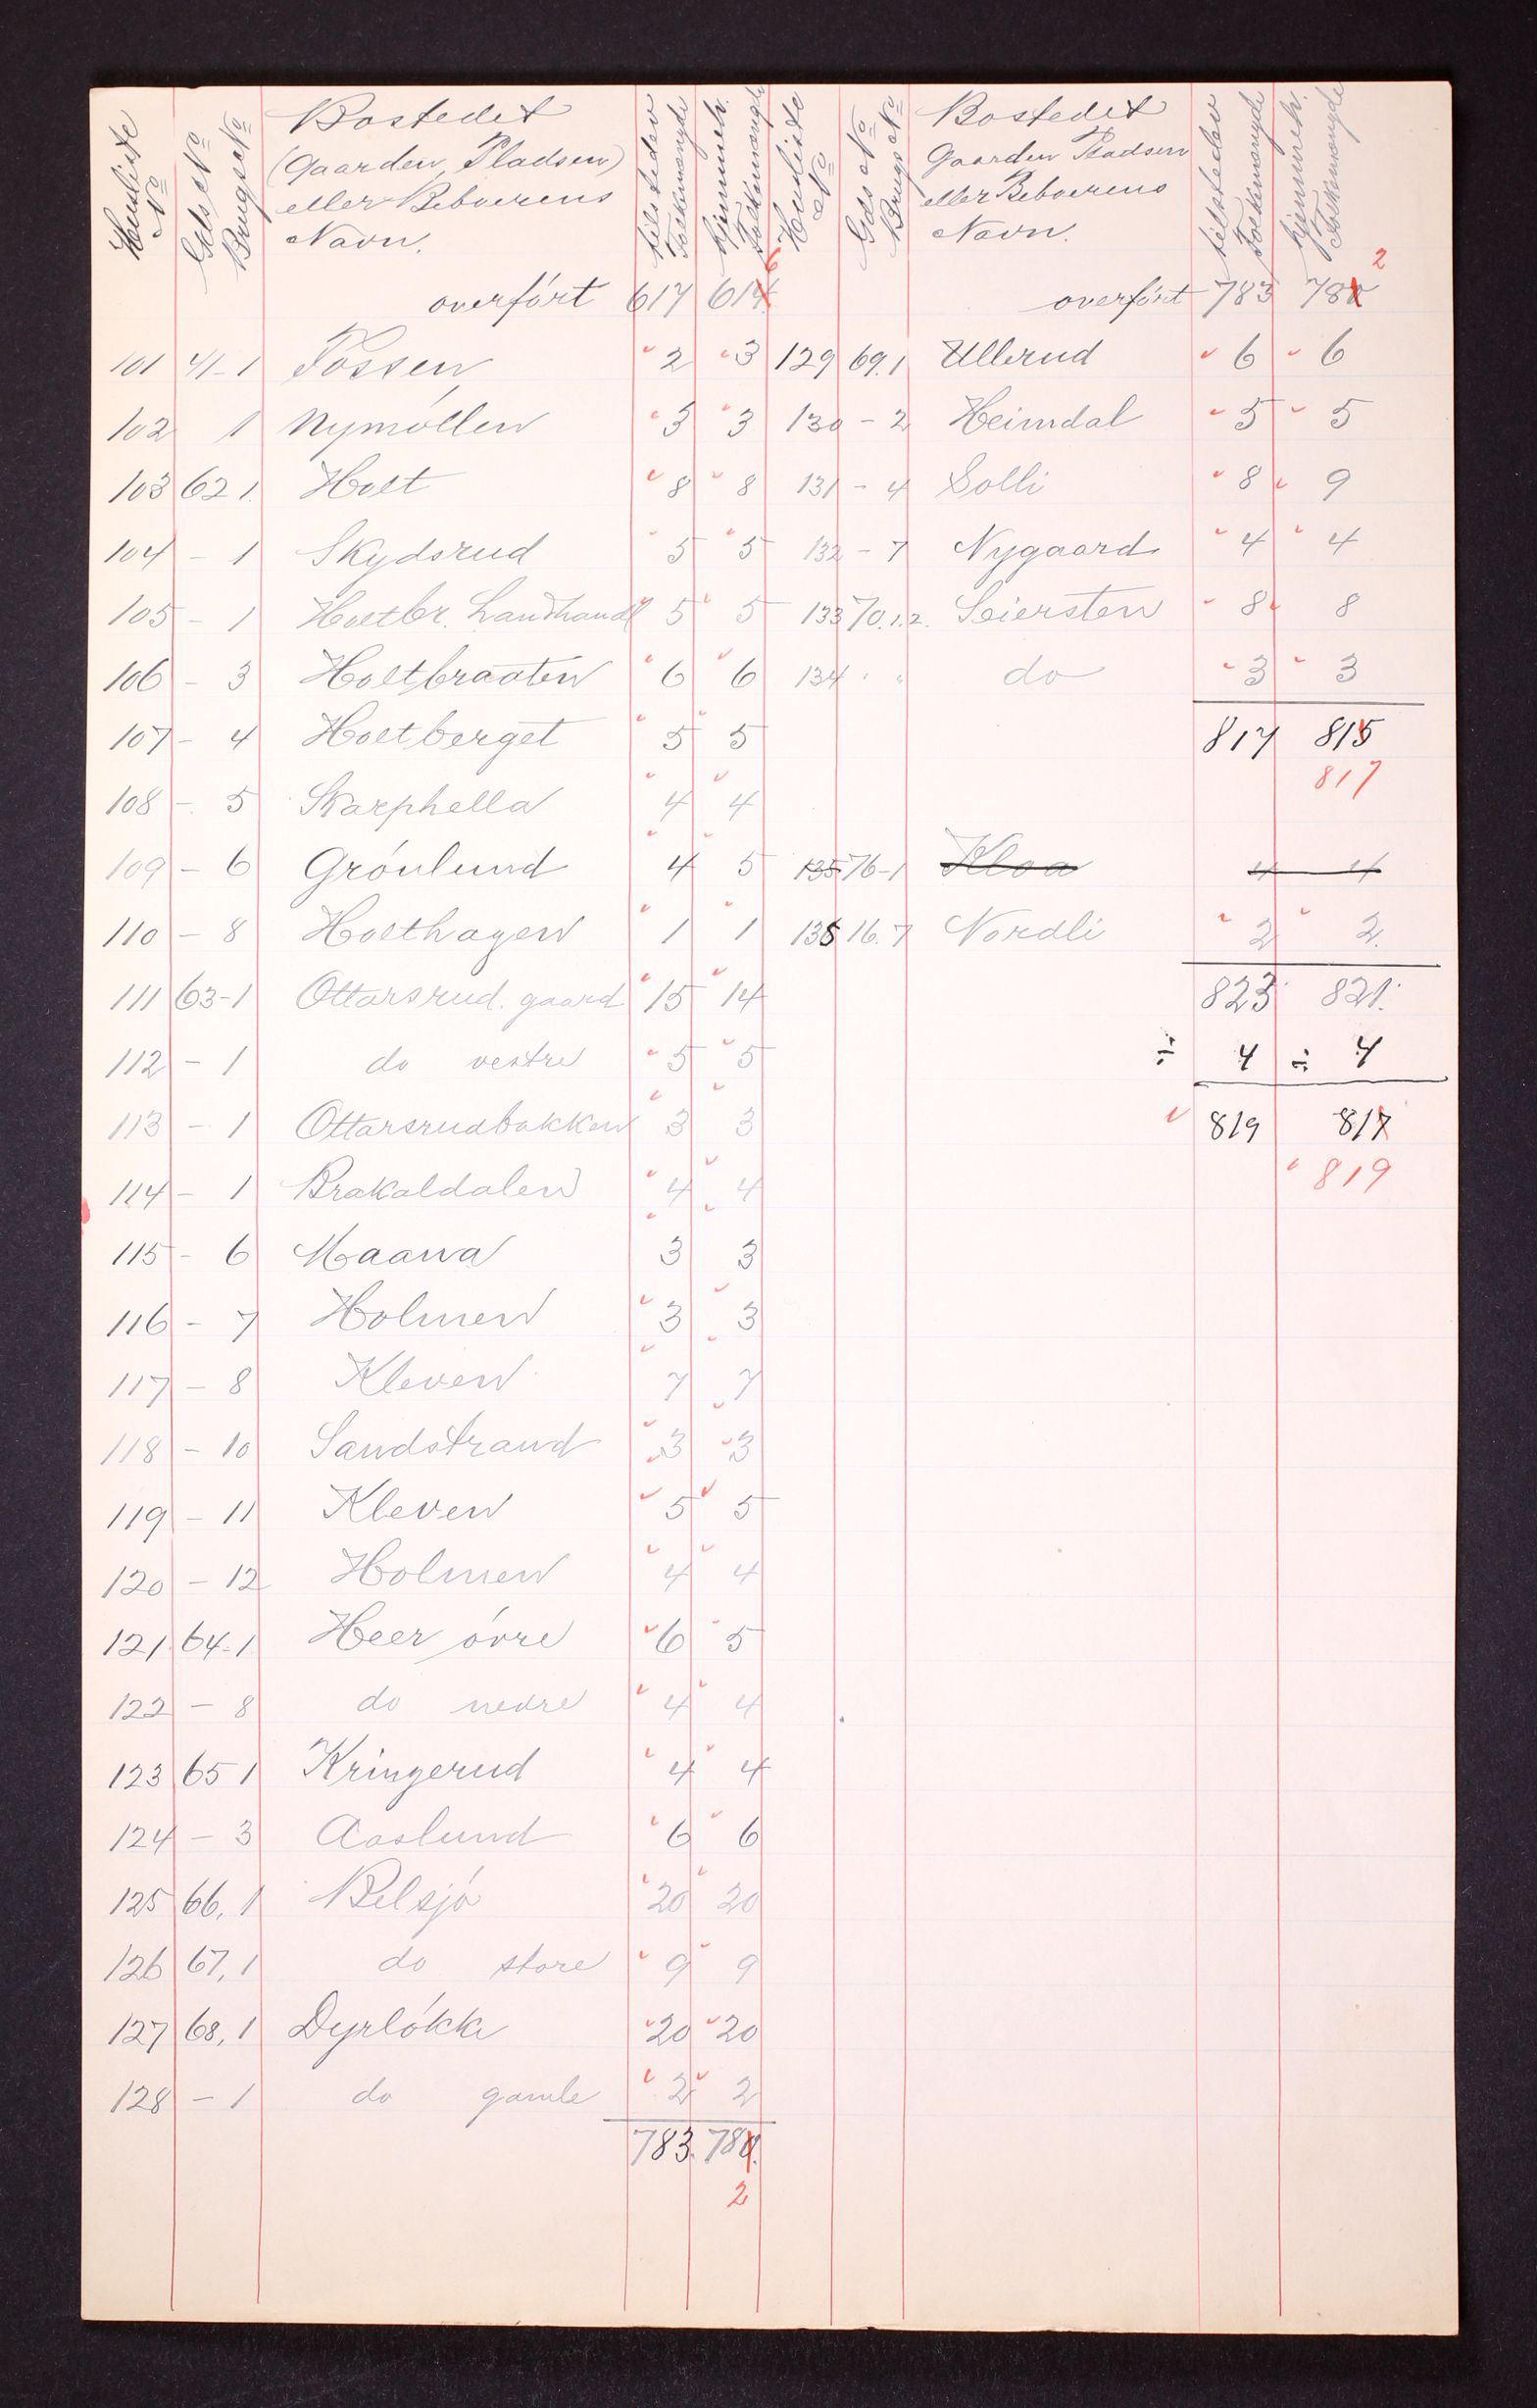 Husliste No
Gds No Brugs No
Bostedet (Gaarden, Pladsen) eller Beboerens Navn.
tilstedev Folkemængde
hjemmeh. Folkemængde
overfört 617 614 6
101 41-1 Fossen 2 3
102 1 Nymöllen 3 3
103 62 1. Holt 8 8
104 - 1 Skydsrud 5 5
105 - 1 Holtbr. Landhandl 5 5
106 - 3 Holtbraaten 6 6
107 - 4 Holtberget 5 5
108 - 5 Skarphella 4 4
109 - 6 Grönlund 4 5
110 - 8 Holthagen 1 1
111 63-1 Ottarsrud. gaard 15 14
112 - 1 do vestre 5 5
113 - 1 Ottarsrudbakken 3 3
114 - 1 Brakaldalen 4 4
115 - 6 Maana 3 3
116 - 7 Holmen 3 3
117 - 8 Kleven 7 7
118 - 10 Sandstrand 3 3
119 - 11 Kleven 5 5
120 - 12 Holmen 4 4
121 64-1 Heer övre 6 5
122 - 8 do nedre 4 4
123 65 1 Kringerud 4 4
124 - 3 Aaslund 6 6
125 66, 1 Belsjö 20 20
126 67, 1 do store 9 9
127 68, 1 Dyrlökke 20 20
128 - 1 do gamle 2 2
783. 780.
2
Husliste No
Gds No Brugs No
Bostedet Gaarden Pladsen eller Beboerens Navn.
tilstedev Folkemængde
hjemmeh. Folkemængde
overfört 783 780 2
129 69.1 Ullerud 6 6
130 - 2 Heimdal 5 5
131 - 4 Solli 8 9
132 - 7 Nygaard 4 4
133 70.1.2. Seiersten 8 8
134 " " do 3 3
817 815
817
135 76-1 Kloa 4 4
135 16.7 Nordli 2 2.
823 821.
÷ 4 ÷ 4
819 817
819